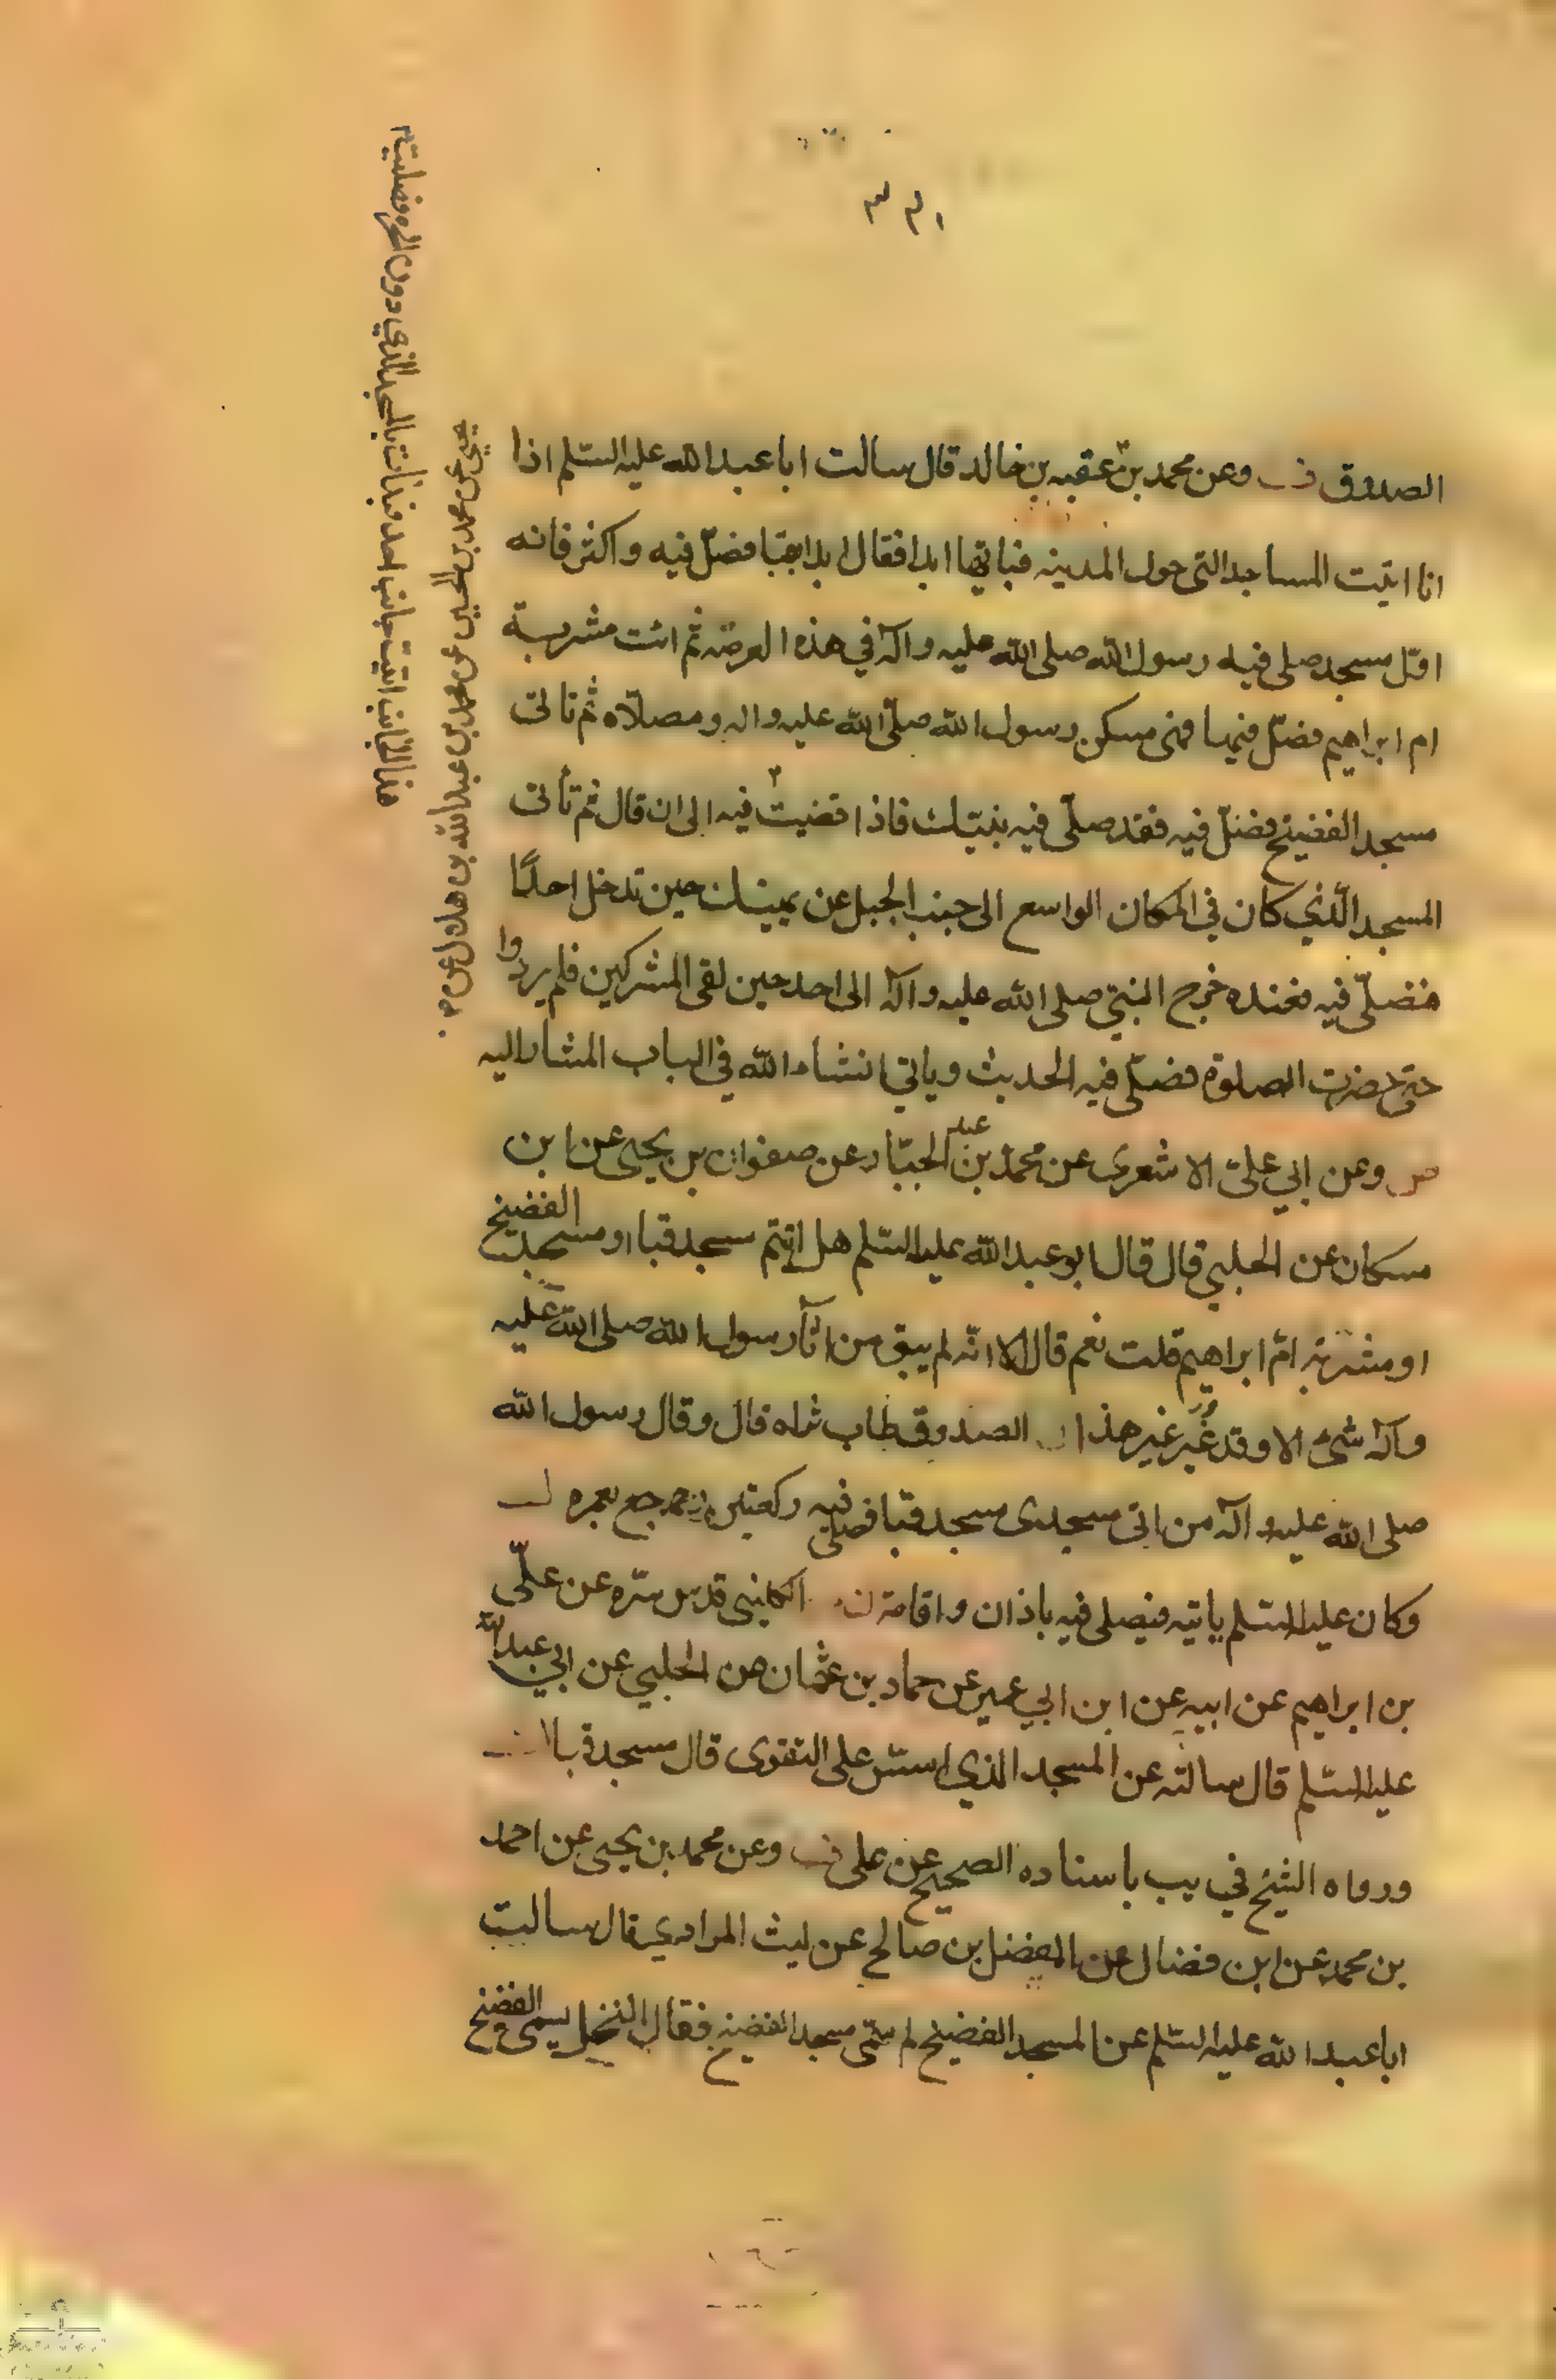 ١٣٣
الصدوق ف وعن محمد بن عقبه بن خالد قال سالت ابا عبدالله عليه السّلم اذا
انا اتيت المساجد التى حول المدينه فباتيها ابدا فقال ابدا بقبا فصلّ فيه واكثر فانه
اوّل مسجد صلى فيه رسول الله صلى الله عليه وآله في هذه العرصه ثم ائت مشربة
ام ابراهيم فصلّ فيها فهى مسكن رسول الله صلّى الله عليه واله ومصلّاه ثم تاتى
مسجد الفضيخ فصلّ فيه فقد صلّى فيه نبيّك فاذا قضيت فيه الى ان قال ثم تأتى
المسجد الّذي كان في المكان الواسع الى جنب الجبل عن يمينك حين تدخل احدًا
فتصلّى فيه فعنده خرج النبيّ صلى الله عليه وآله الى احد حين لقى المشركين فلم يردوا
حتى حضرت الصلوة فصلّى فيه الحديث وياتي انشاء الله في الباب المشار اليه
ص وعن ابي عليّ الاشعرى عن محمد بن عبد الجبّار عن صفوان بن يحيى عن ابن
مسكان عن الحلبي قال قال ابو عبدالله عليه السّلم هل اتيتم مسجد قبا او مسجد الفضيخ
او مشربة امّ ابراهيم قلت نعم قال الا انّه لم يبق من اثآر رسول الله صلى الله عليه
وآله شئ الا وقد غُيّر غير هذا الصدوق طاب ثراه قال وقال رسول الله
صلى الله عليه وآله من اتى مسجدى مسجد قبا فصلى فيه ركعتين رجع بعمره
وكان عليه السّلم ياتيه فيصلى فيه باذان واقامة الكلينى قدس سّره عن علىّ
بن ابراهيم عن ابيه عن ابن ابي عمير عن حماد بن عثمان عن الحلبي عن ابي عبدالله
عليه السّلم قال سالته عن المسجد الذي اسّس على التقوى قال مسجد قبا
ورواه الشيخ في يب باسناده الصحيح عن على ف وعن محمد بن يحيى عن احمد
بن محمد عن ابن فضال عن المفضل بن صالح عن ليث المرادي قال سالت
ابا عبدالله عليه السّلم عن المسجد الفضيخ لم سمّى مسجد الفضيخ فقال النخل يسمى الفضيخ
يحيى عن محمد بن الحسين عن محمد بن عبدالله بن هلال عن
هذا الجانب اتيت جانب احد فبدأت بالمسجد الذي دون الحره فصليت